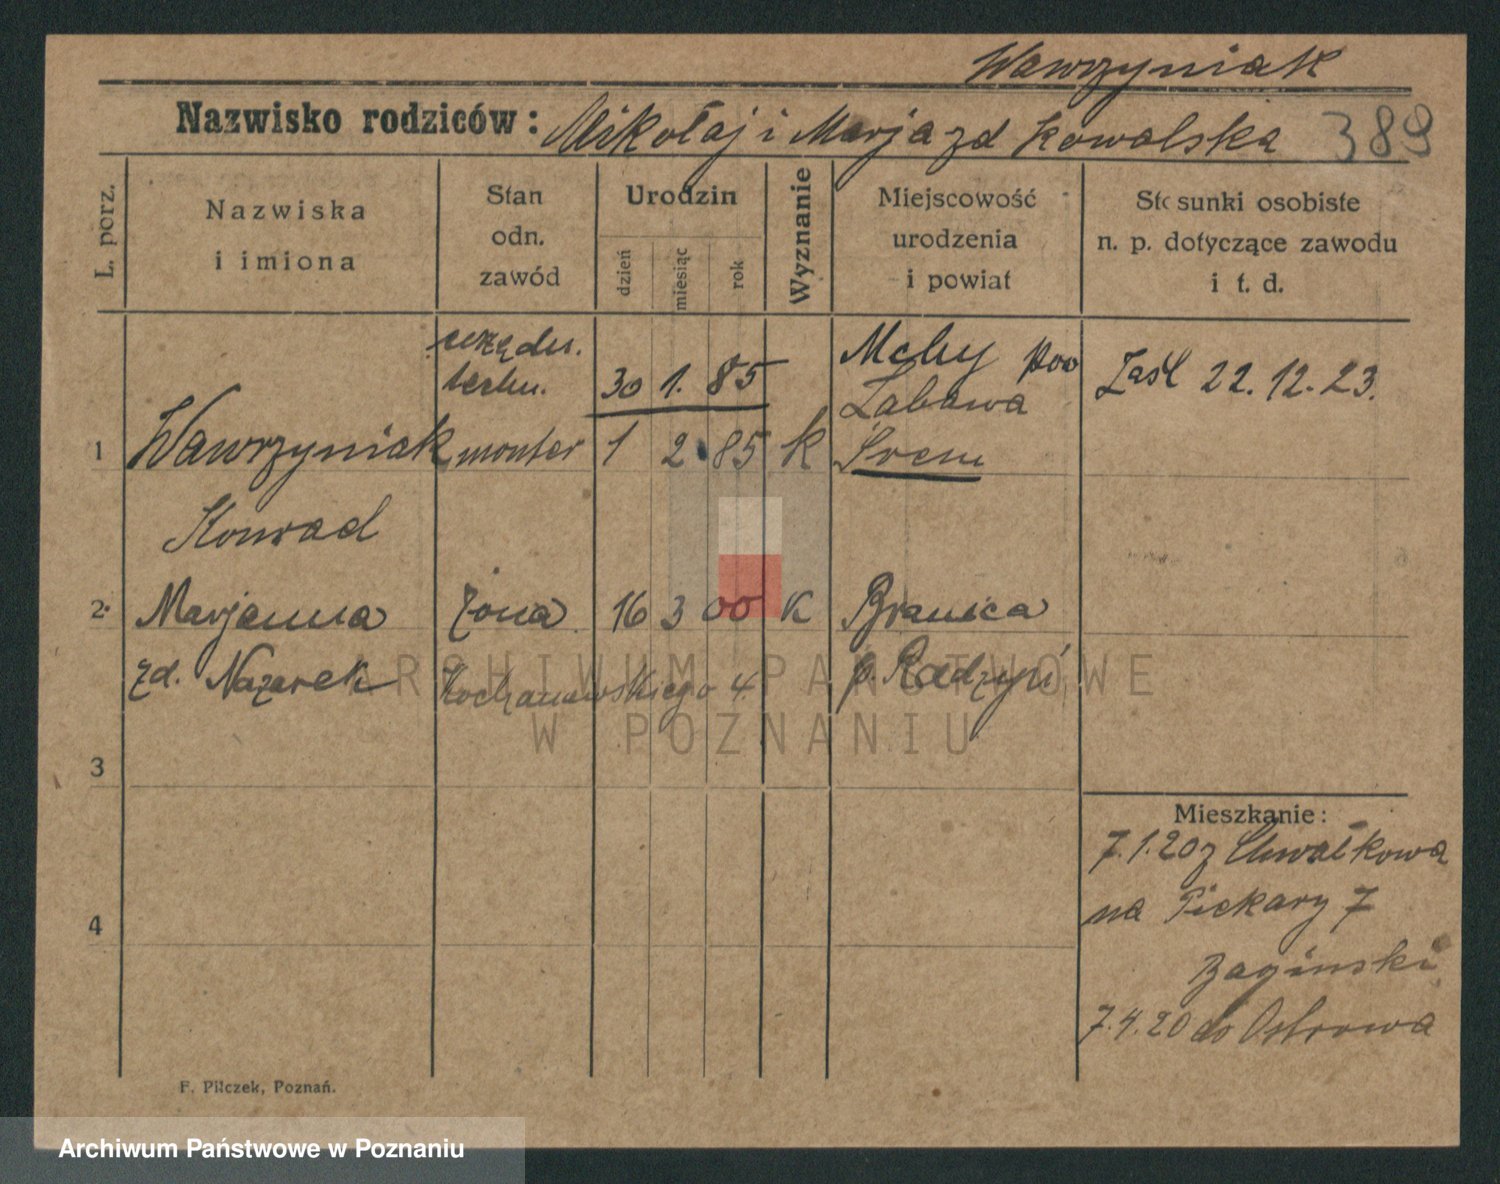 Wawrzyniak
Nazwisko rodziców: Mikołaj i Marja zd Kowalska 389
L. porz.
Nazwiska i imiona
Stan odn. zawód
Urodzin
dzień miesiąc rok
Wyznanie
Miejscowość urodzenia i powiat
Stosunki osobiste n. p. dotyczące zawodu i t. d.
urzędn.
techn.
30 1. 85
Mchy pow
Zabawa
Zaśl 22.12.23.
1 Wawrzyniak monter 1 2. 85 k Śrem
Konrad
2. Marjanna żona 16 3 00 K Branica
zd. Nazarek Kochanowskiego 4. p. Radzyń
ARCHIWUM PAŃSTWOWE
W POZNANIU
3
Mieszkanie:
7.1.20 z Chwałkowa
4
na Piekary 7
Zaginski
7.4.20 do Ostrowa
F. Pilczek, Poznań.
Archiwum Państwowe w Poznaniu